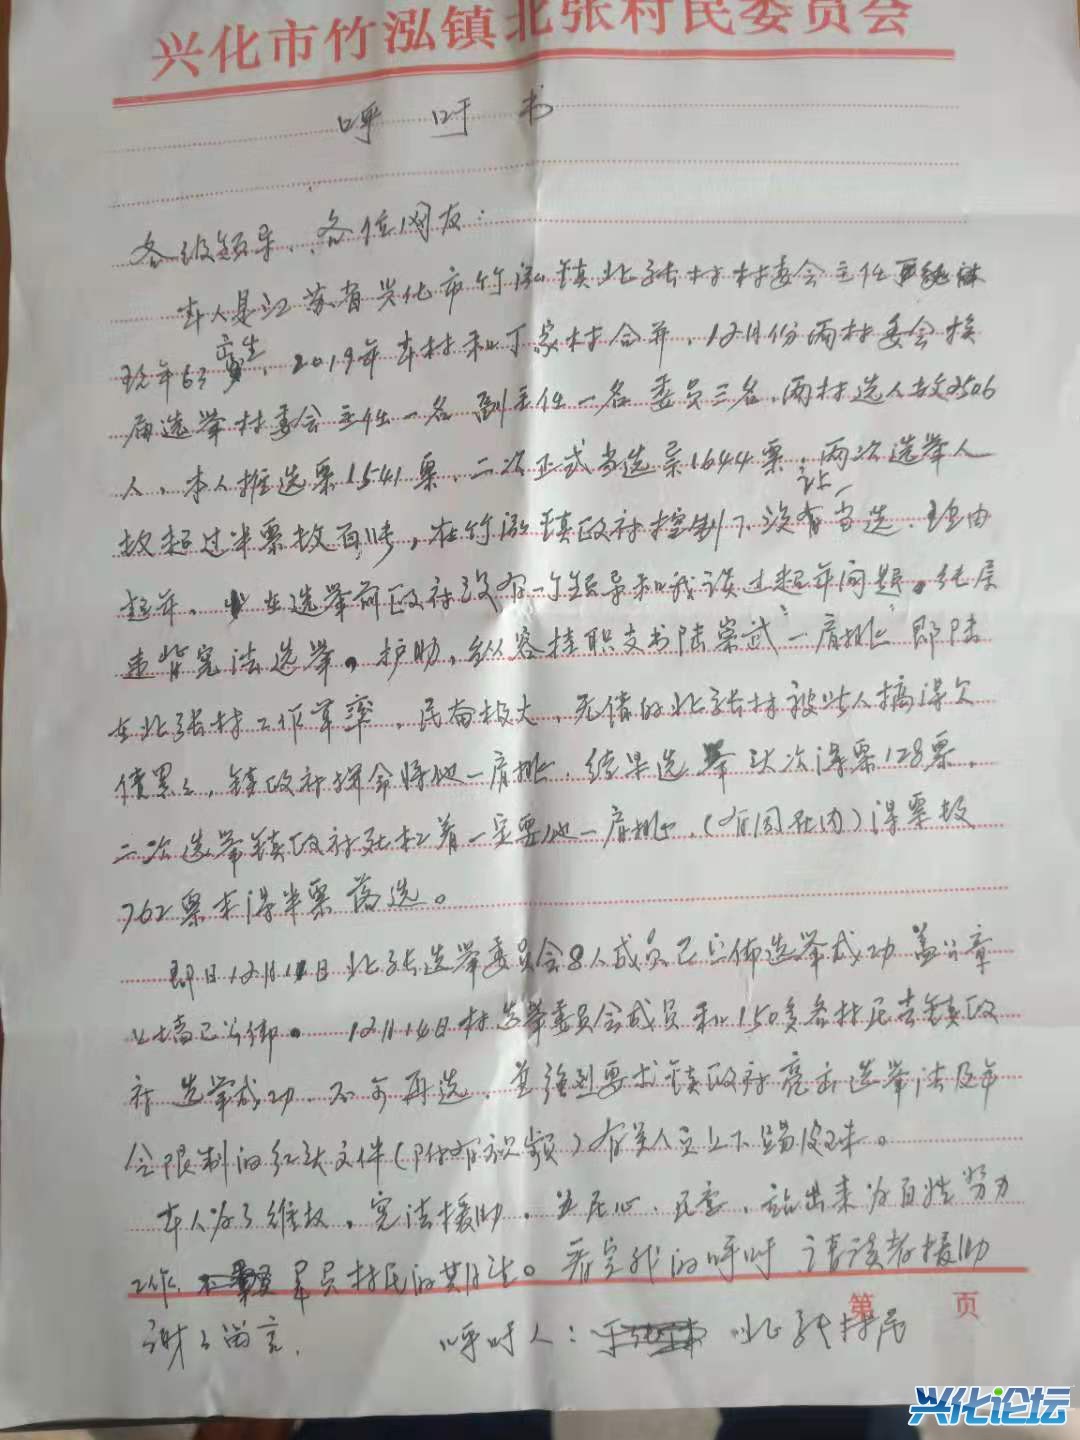 兴化市竹泓镇北张村民委员会
呼吁书
各级领导、各位网友：
本人是江苏省兴化市竹泓镇北张村村委会主任
现年63岁，2019年本村和丁家村合并，12月份两村委会换
届选举村委会主任一名 副主任一名 委员三名，两村选人数2506
人，本人推选票1541票，二次正式当选票1644票，两次选举人
数超过半票数百张，在竹泓镇政府控制下没有让当选，理由
超年，在选举前政府没有一个领导和我谈过超年问题。纯属
违背宪法选举，护助，纵容挂职支书陆崇武“一肩挑”即陆
在北张村工作草率，民奋极大，无债的北张村被此人搞得欠
债累累，镇政府拼命将他一肩挑，结果选举头次得票128票，
二次选举镇政府死扛着一定要他一肩挑，（有圈在内）得票数
762票未得半票落选。
即日12月11日北张选举委员会8人成员已公布选举成功 盖公章
上墙已公布。 12月14日村选举委员会成员和150多名村民去镇政
府 选举成功，不可再选，并强烈要求镇政府亮出选举法及年
令限制的红头文件（附有视频）有关人员上下踢皮球。
本人为了维权，宪法援助，
民心，民意，站出来为百姓努力
工作
村民的
看完我的呼吁 请读者援助
谢谢留言。 呼吁人： 北张村民
第 页
兴化论坛